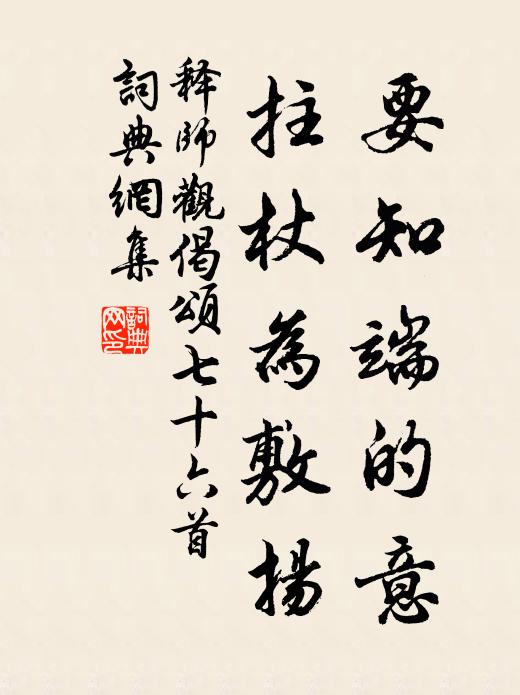 要知端的意
拄杖為敷揚
释師觀偈頌七十六首
詞典網集
詞典网印